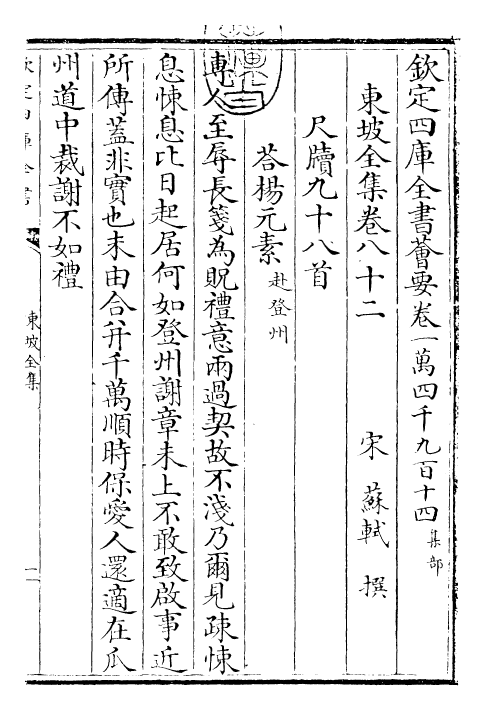 欽定四庫全書薈要卷一萬四千九百十四 集部
東坡全集卷八十二
宋 蘇軾 撰
尺牘九十八首
荅楊元素 赴登州
專人至辱長箋為貺禮意兩過契故不淺乃爾見疎悚
息悚息比日起居何如登州謝章未上不敢致啟事近
所傳蓋非實也未由合并千萬順時保愛人還適在瓜
州道中裁謝不如禮
欽定四庫全書
東坡全集
一